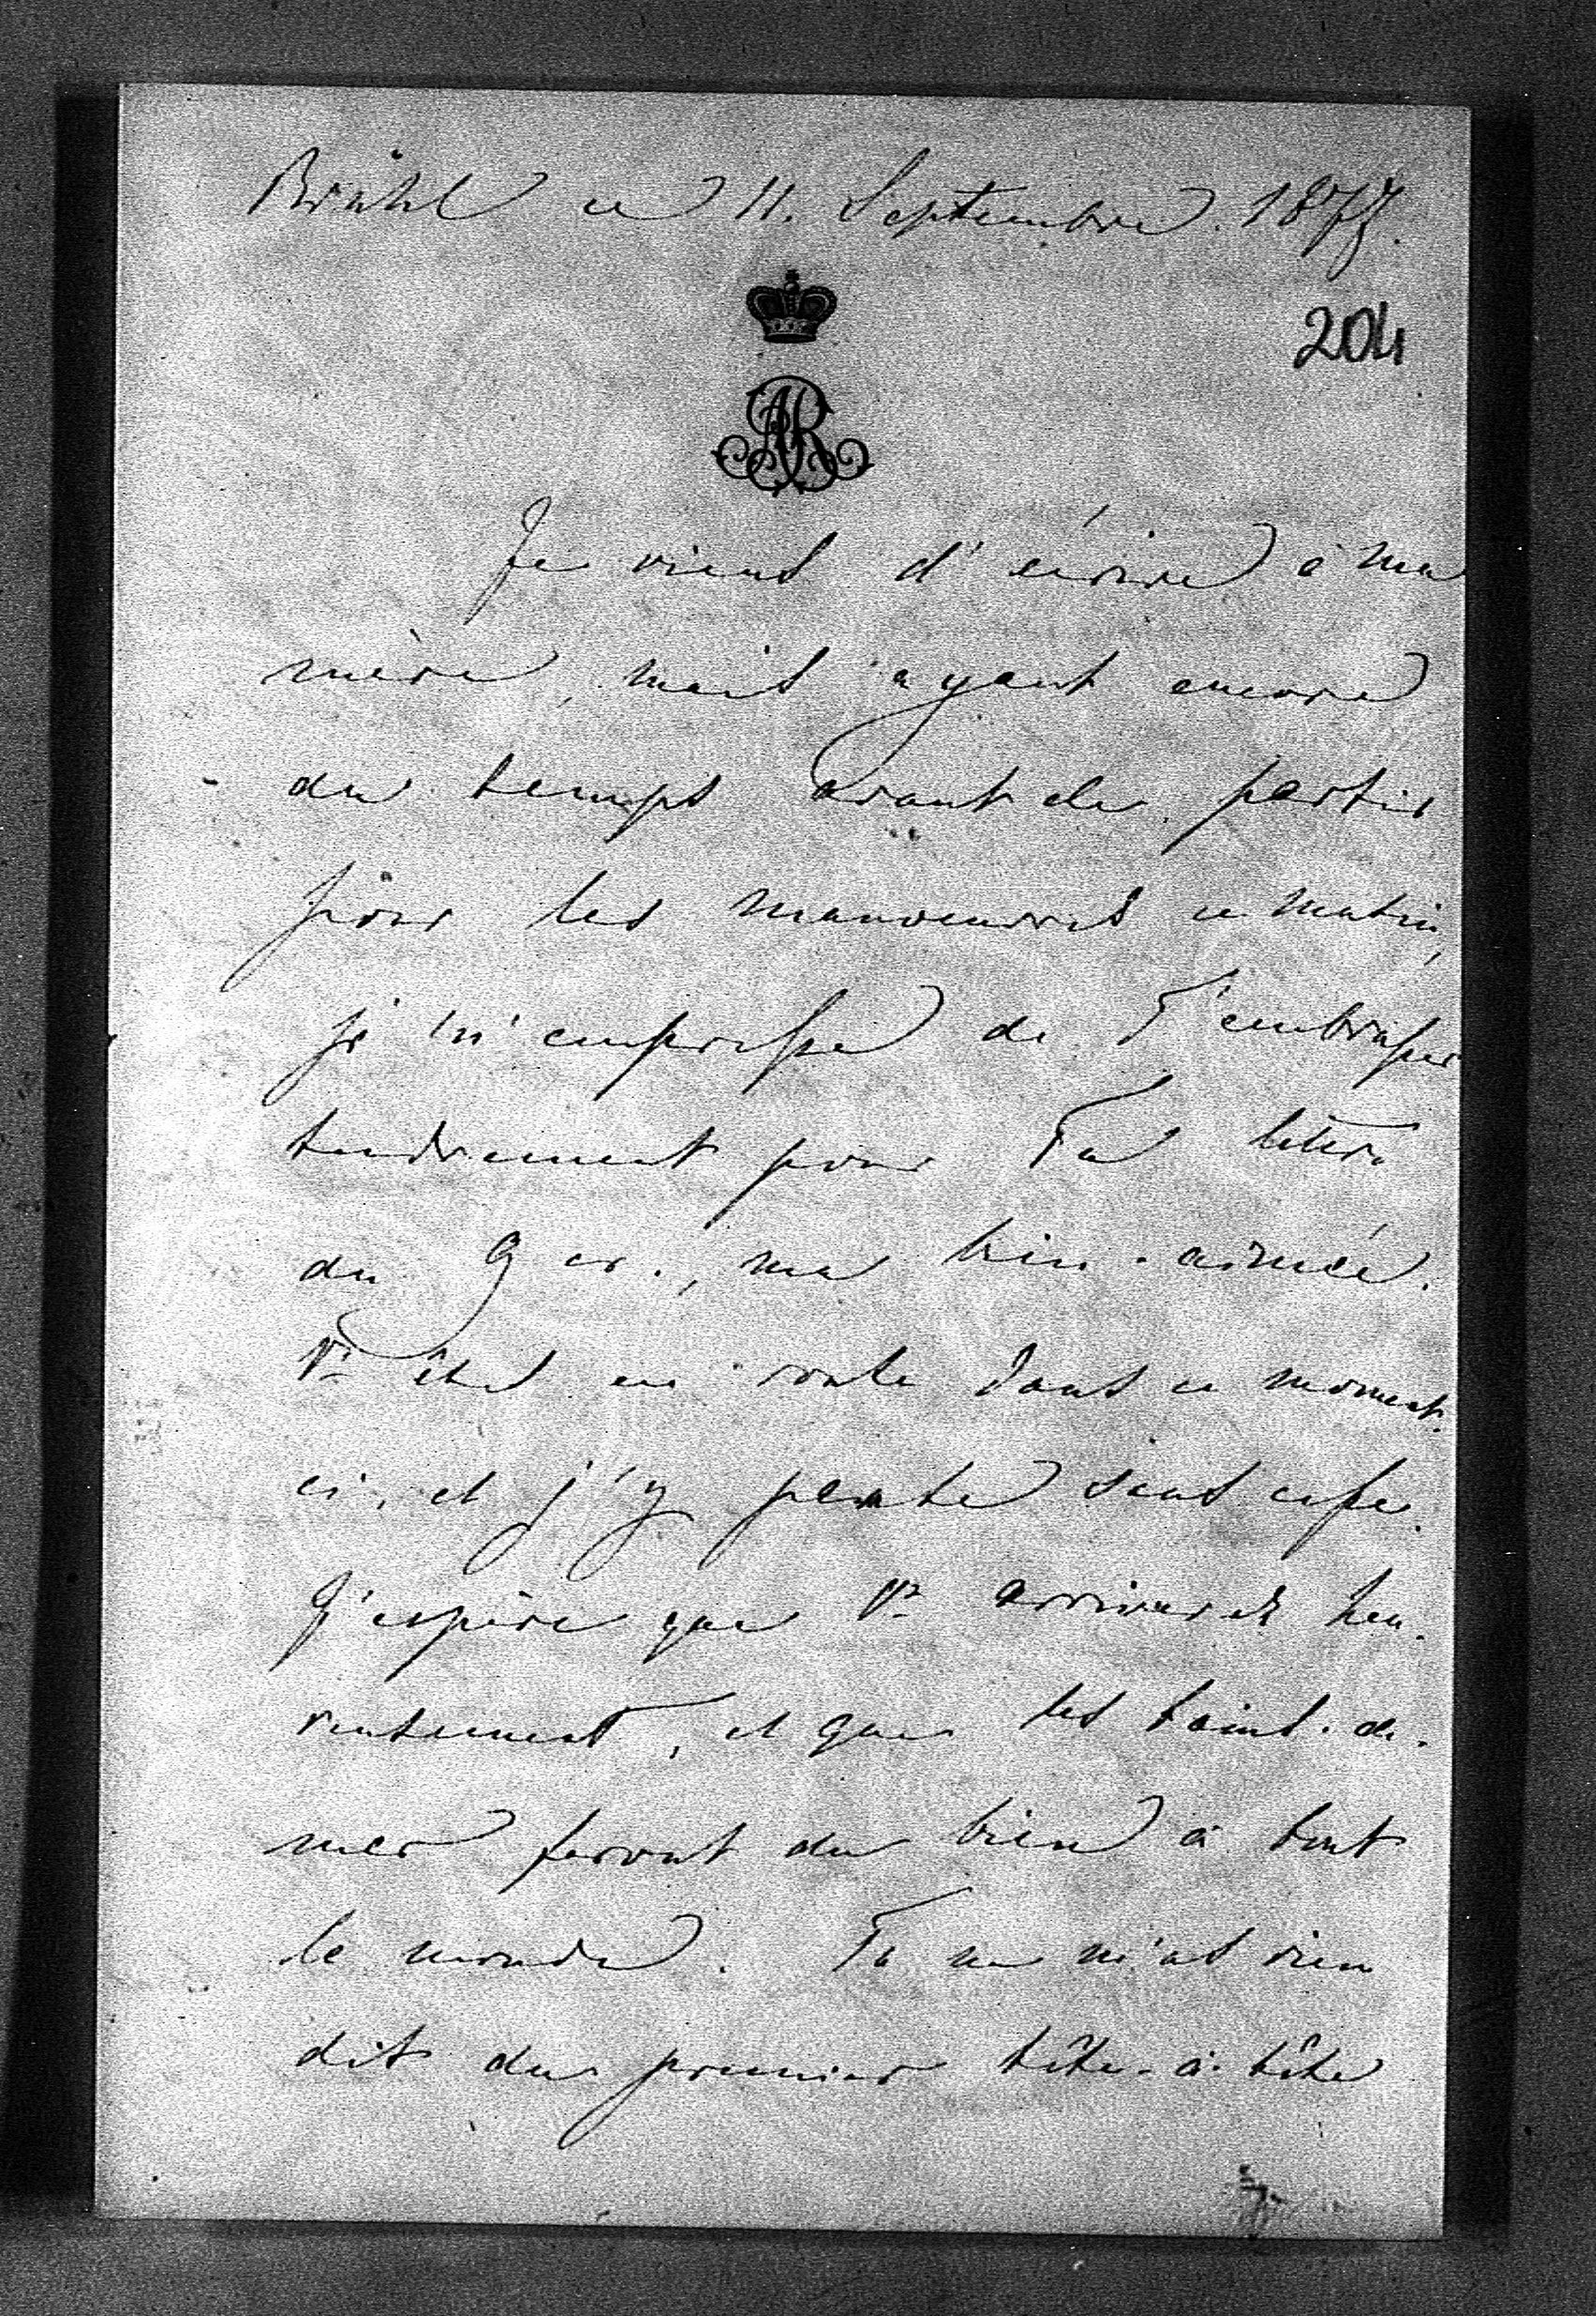 Brühl ce 11. Septembre. 1877.
204
AR
Je viens d'écrire à ma
mère, mais ayant encore
du temps avant de partir
pour les manoeuvres ce matin,
je m'empresse de T'embrasser
tendrement pour Ta lettre
du 9 cr., ma bien-aimée.
Vs êtes en route dans ce moment-
ci, et j'y pense sans cesse.
J'espère que Vs arriverez heu-
reusement, et que les bains-de-
mer feront du bien à tout
le monde. Tu ne m'as rien
dit du premier tête-à-tête